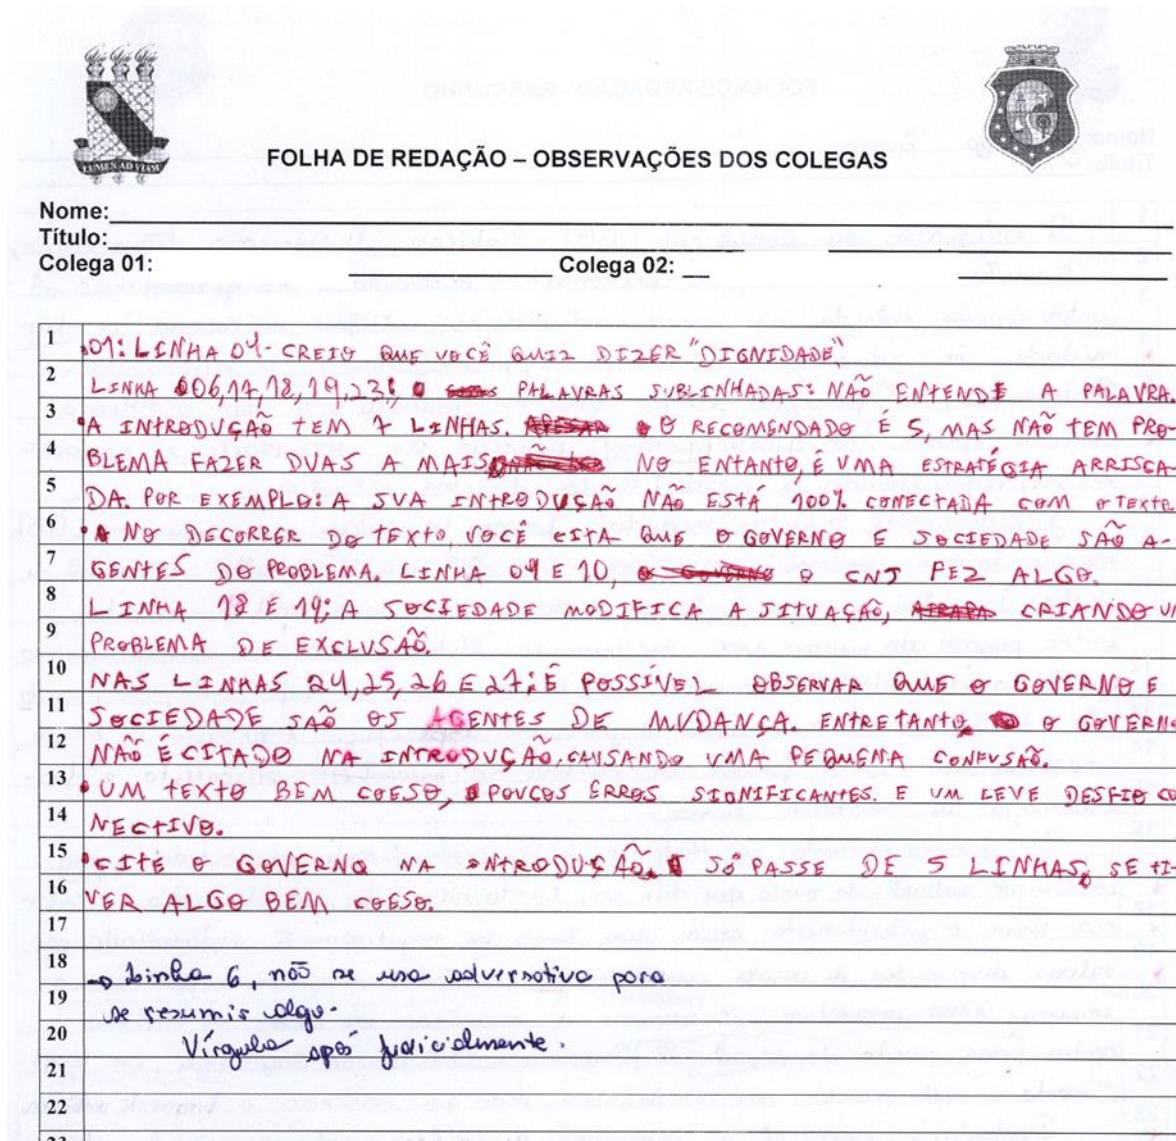 FOLHA DE REDAÇÃO – OBSERVAÇÕES DOS COLEGAS
Nome:
Título:
Colega 01: Colega 02:
1 •01: LINHA 04- CREIO QUE VOCÊ QUIZ DIZER "DIGNIDADE"
2 LINHA 006,17,18,19,23; PALAVRAS SUBLINHADAS: NÃO ENTENDI A PALAVRA.
3 •A INTRODUÇÃO TEM 7 LINHAS. O RECOMENDADO É 5, MAS NÃO TEM PRO-
4 BLEMA FAZER DUAS A MAIS NO ENTANTO, É UMA ESTRATÉGIA ARRISCA-
5 DA. POR EXEMPLO: A SUA INTRODUÇÃO NÃO ESTA 100% CONECTADA COM O TEXTO.
6 • NO DECORRER DO TEXTO, VOCÊ CITA QUE O GOVERNO E SOCIEDADE SÃO A-
7 GENTES DO PROBLEMA. LINHA 09 E 10, O CNJ FEZ ALGO.
8 LINHA 18 E 19; A SOCIEDADE MODIFICA A SITUAÇÃO, CRIANDO UM
9 PROBLEMA DE EXCLUSÃO.
10 NAS LINHAS 24,25,26 E 27; É POSSÍVEL OBSERVAR QUE O GOVERNO E
11 SOCIEDADE SÃO OS AGENTES DE MUDANÇA. ENTRETANTO, O GOVERNO
12 NÃO É CITADO NA INTRODUÇÃO, CAUSANDO UMA PEQUENA CONFUSÃO.
13 • UM TEXTO BEM COESO, POUCOS ERROS SIGNIFICANTES. E UM LEVE DESFIO CO
14 NECTIVO.
15 •CITE O GOVERNO NA INTRODUÇÃO. SÓ PASSE DE 5 LINHAS, SE TI-
16 VER ALGO BEM COESO.
17
18 → Linha 6, não se usa adversativa para
19 se resumir algo.
20 Vírgula após judicialmente.
21
22
23